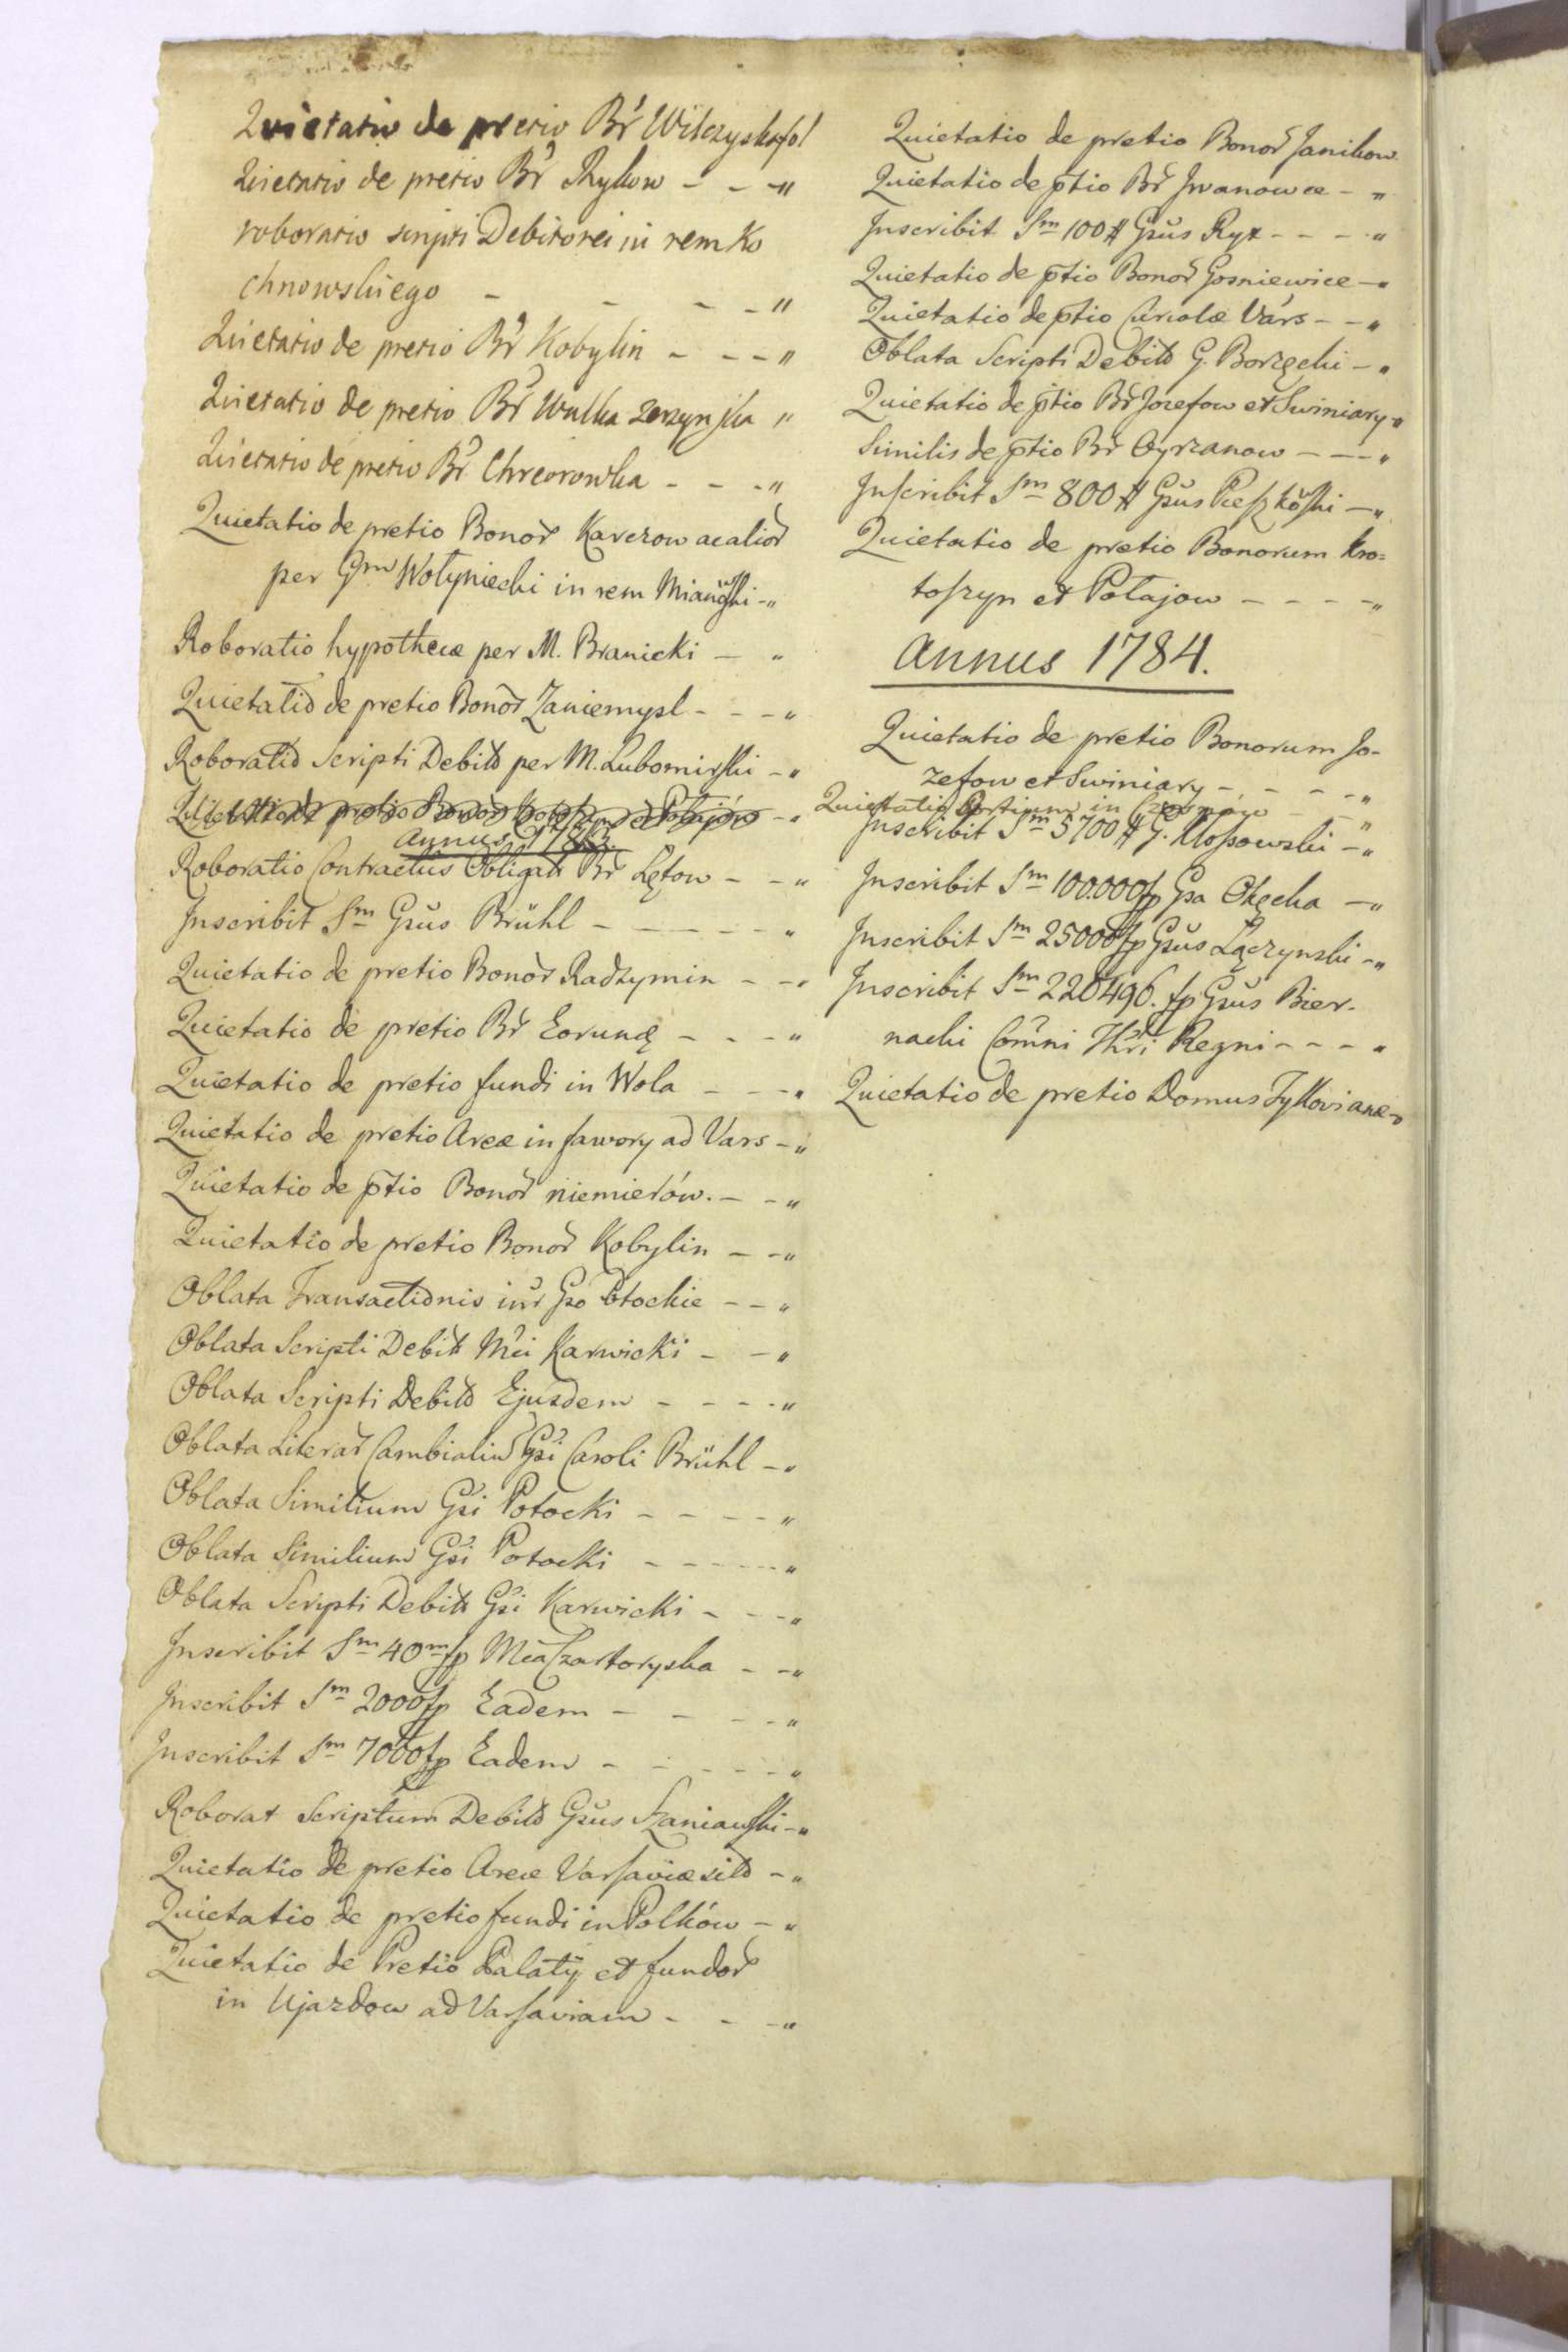 Quietatio de pretio Br̃ Wilczyska fol
Quietatio de pretio Br̃ Rykow - - - "
roboratio scripti Debitorei in rem Ko
chnowskiego - - - - "
Quietatio de pretio Br̃ Kobylin - - - "
Quietatio de pretio Br̃ Wulka zerzynska "
Quietatio de pretio Br̃ - - - "
Quietatio de pretio Bonor̃ Karczow ac alior̃
per Gm Wołyniecki in rem - "
Roboratio hypothecæ per M. Branicki - "
Quietatio de pretio Bonor̃ Zaniemysl - - - "
Roboratio Scripti Debito per M. Lubomirski - "
Quietatio de pretio Bonor̃ Krotoszyn et Potajów - "
Annus 1783.
Roboratio Contractus Obligat̃ Br̃ Lętow - - "
Inscribit Sm Gsus Brühl - - - - - "
Quietatio de pretio Bonor̃ Radzymin - - "
Quietatio de pretio Br̃ Eorund̃ - - - "
Quietatio de pretio fundi in Wola - - - "
Quietatio de pretio Areæ in fawory ad Vars - "
Quietatio de p̃tio Bonor̃ niemierów. - - "
Quietatio de pretio Bonor̃ Kobylin - - "
Oblata Transactionis int̃ Gso Potockie - - "
Oblata Scripti Debit̃ Mci Karwicki - - "
Oblata Scripti Debito Ejusdem - - - - "
Oblata Literar̃ Cambialiũ Gsi Caroli Brühl - "
Oblata Similium Gsi Potocki - - - - "
Oblata Similium Gsi Potocki - - - - - "
Oblata Scripti Debit̃ Gsi Karwicki - - - "
Inscribit Sm 40m fp Mca Czartoryska - - "
Inscribit Sm 2000 fp Eadem - - - - "
Inscribit Sm 7000 fp Eadem - - - - - "
Roborat Scriptum Debito Gsus Szaniawski - "
Quietatio de pretio Areæ Varsaviæ sito - "
Quietatio de pretio fundi in Polków - "
Quietatio de Pretio Palatÿ et fundor̃
in Ujazdow ad Varsaviam - - - "
Quietatio de pretio Bonor̃ Janikow
Quietatio de p̃tio Br̃ Iwanowce - "
Inscribit Sm 100 # Gsus Ryx - - - - "
Quietatio de p̃tio Bonor̃ Gosniewice - "
Quietatio de p̃tio Curiolæ Vars - - "
Oblata Scripti Debito G. Borzęcki - "
Quietatio de p̃tio Br̃ Jozefow et Swiniary - "
Similis de p̃tio Br̃ Cyrzanow - - - "
Inscribit Sm 800 # Gsus - "
Quietatio de pretio Bonorum Kro=
toszyn et Potajow - - - - "
Annus 1784.
Quietatio de pretio Bonorum Jo-
zefow et Swiniary - - - - "
Quietatio Sortium in - - "
Inscribit Sm 5700 # G. Klossowski - "
Inscribit Sm 100.000 fp Gsa Okęcka - "
Inscribit Sm 25000 fp Gsus Łączynski - "
Inscribit Sm 220496. fp Gsus Bier-
nacki Com̃ni Th̃ri Regni - - - "
Quietatio de pretio Domus Tylkovianæ - "